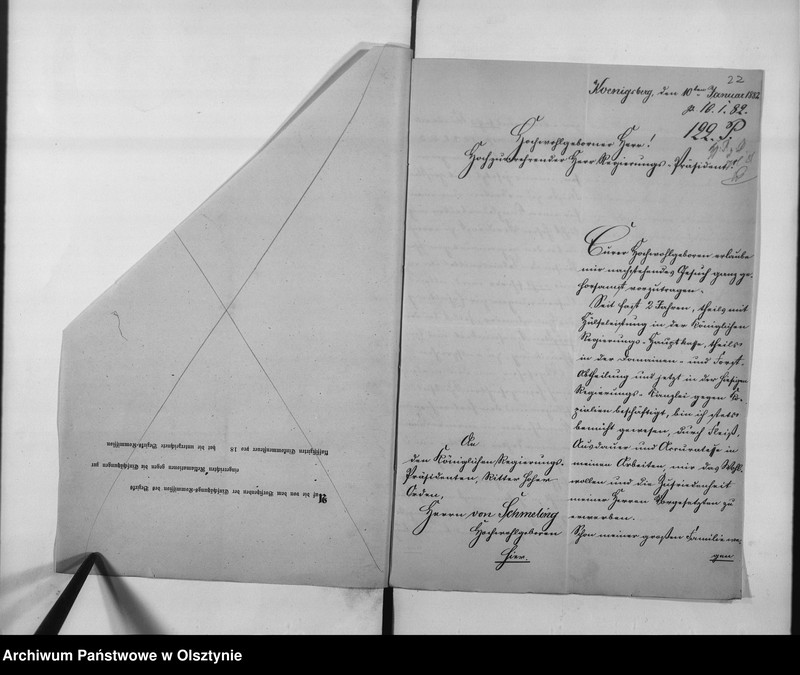 22
Koenigsberg, den 10ten Januar 1882
pr. 10. 1. 82.
122. P.
Hochwohlgeborner Herr!
Hochzuverehrender Herr Regierungs-Präsident!
Eurer Hochwohlgeboren erlaube
mir nachstehendes Gesuch ganz ge-
horsamst vorzutragen.
Seit fast 2 Jahren, theils mit
Hülfeleistung in der Königlichen
Regierungs-Hauptkasse, theils
in der Domainen- und Forst-
Abtheilung und jetzt in der hiesigen
Regierungs-Kanzlei gegen Ko-
pialien beschäftigt, bin ich stets
bemüht gewesen, durch Fleiß,
Ausdauer und Accuratesse in
meinen Arbeiten, mir das Wohl-
wollen und die Zufriedenheit
meiner Herren Vorgesetzten zu
erwerben.
Schon meiner großen Familie we-
gen
An
den Königlichen Regierungs-
Präsidenten, Ritter hoher
Orden,
Herrn von Schmeling
Hochwohlgeboren
Hier.
Auf die von dem Vorsitzenden der Einschätzungs-Kommission des Bezirks
eingereichten Reklamationen gegen die Einschätzungen zur
klassifizirten Einkommensteuer pro 18 hat die unterzeichnete Bezirks-Kommission
Archiwum Państwowe w Olsztynie